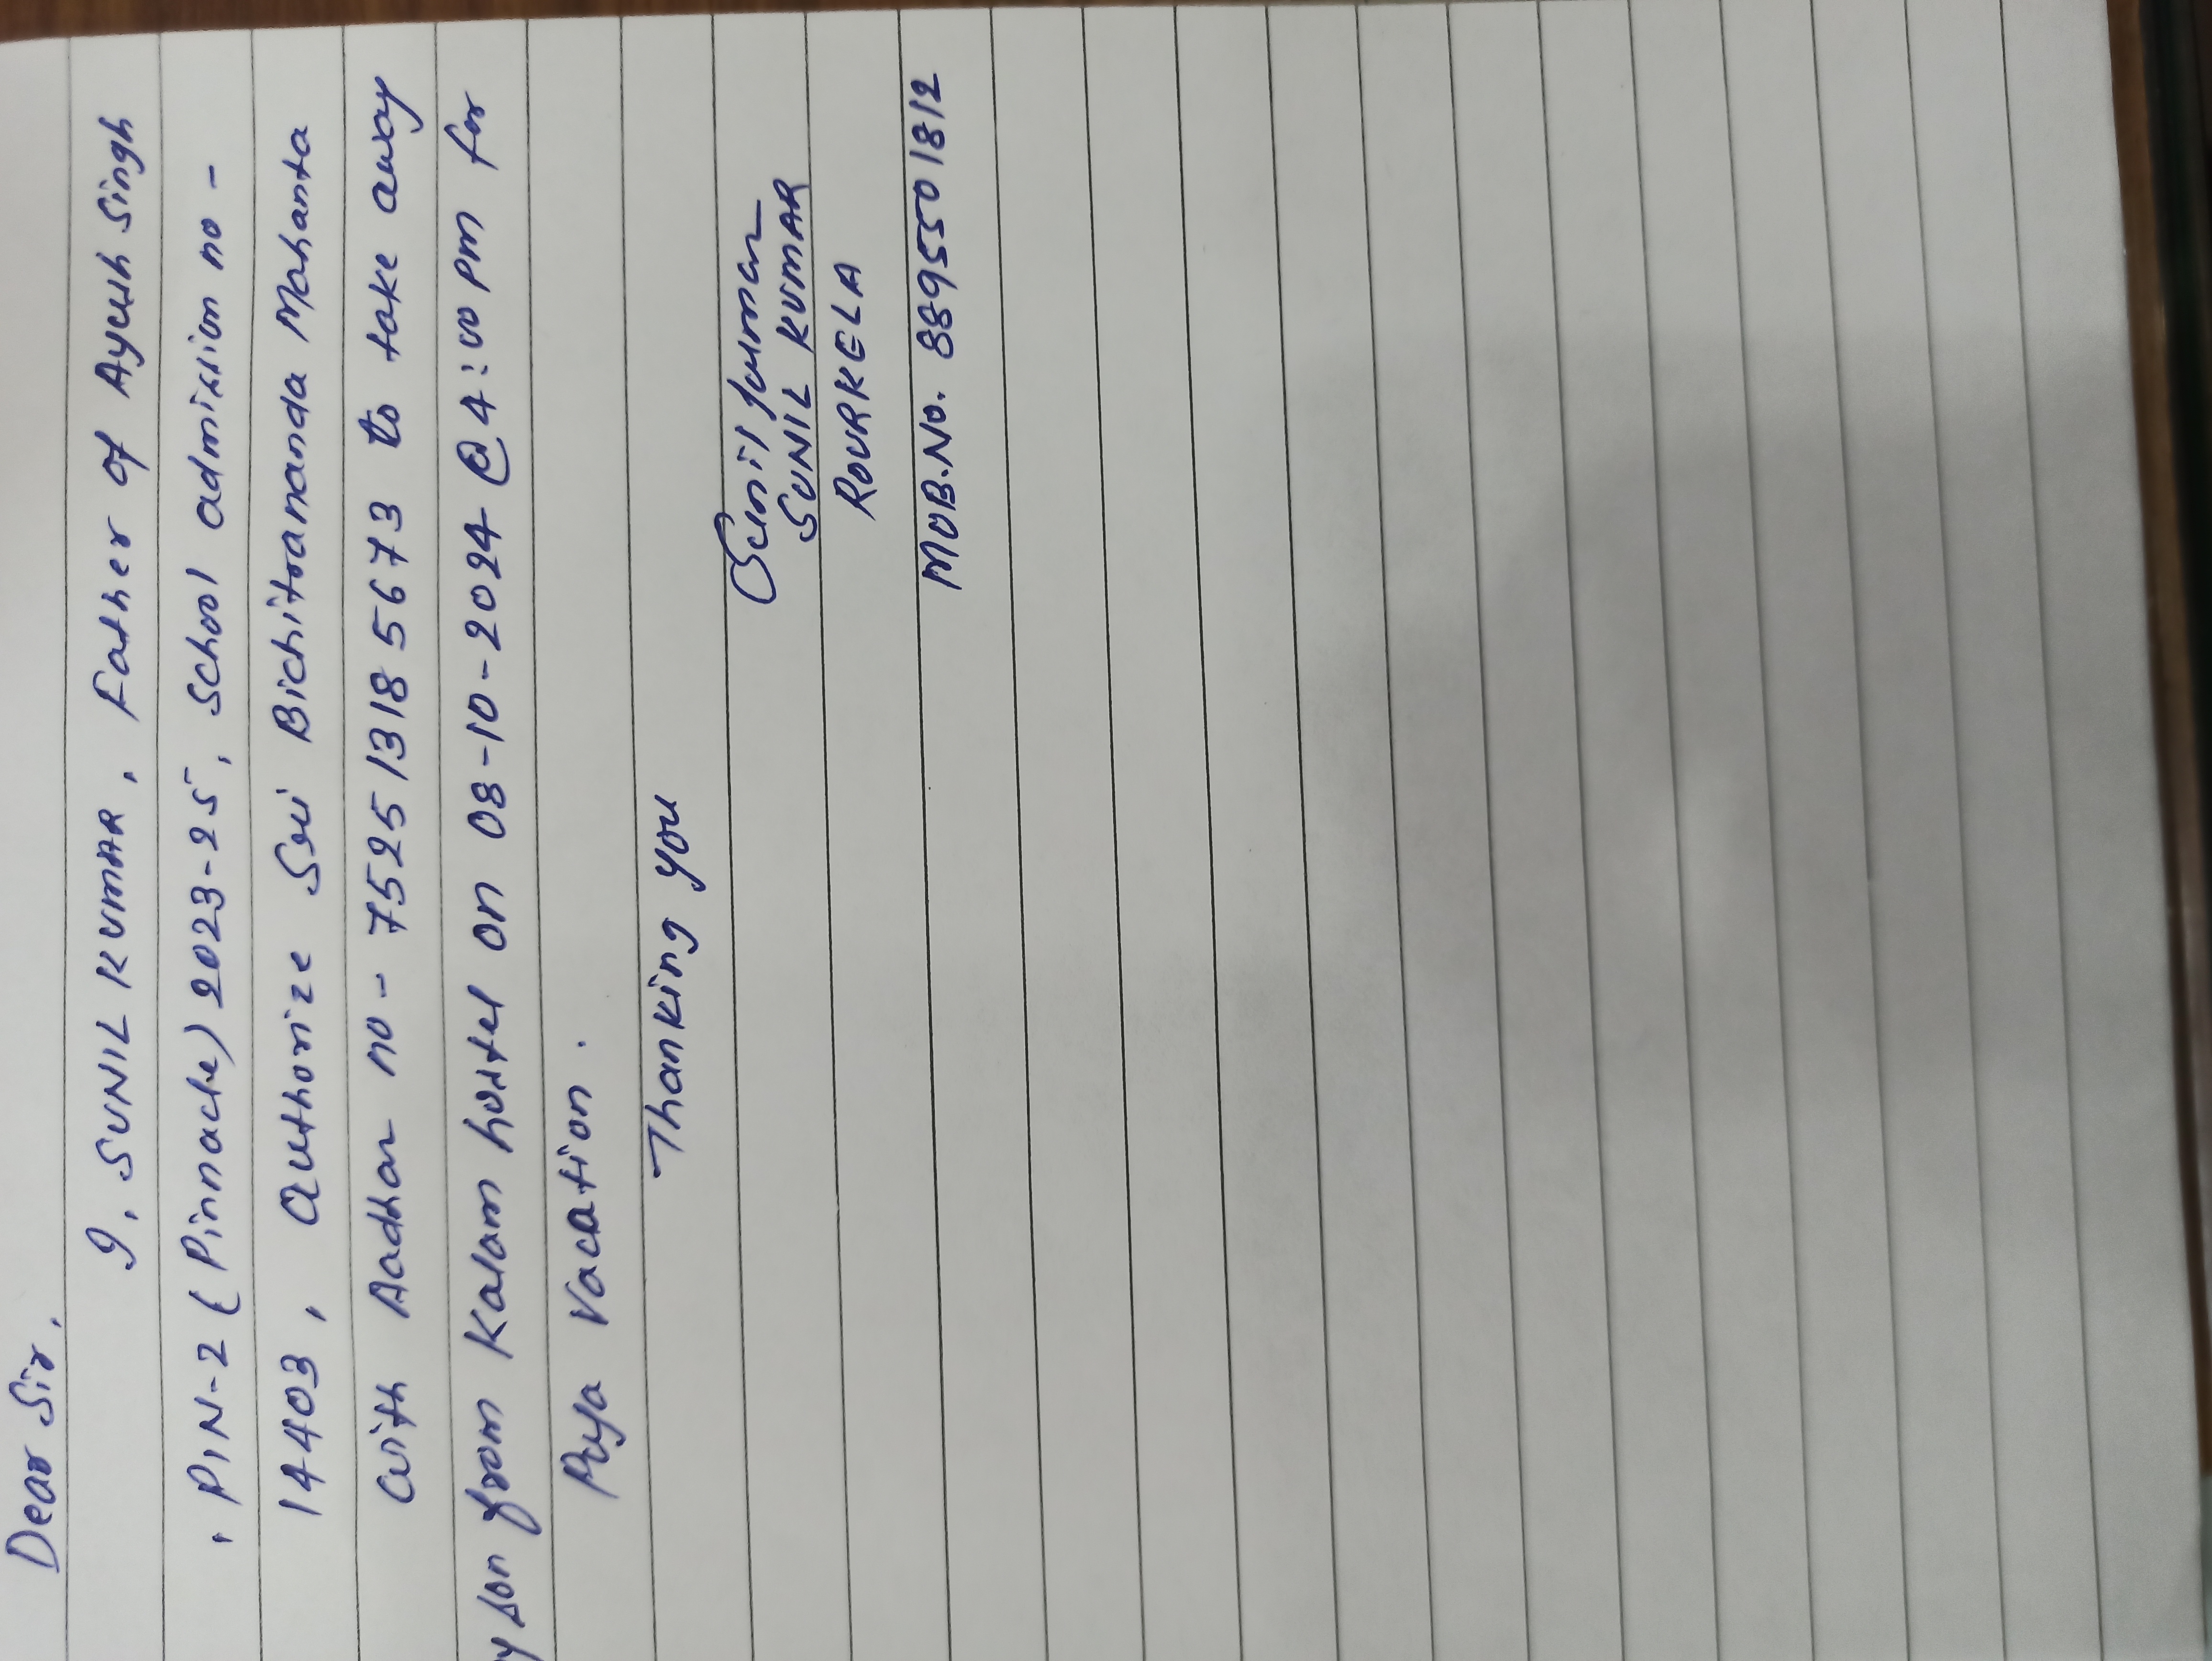 Dear Sir,
I, SUNIL KUMAR, Father of Ayush Singh
, PIN-2 (Pinnacle) 2023-25, School admission no -
14403, authorize Sri Bichitrananda Mahanta
with Aadhar no - 7525 1318 5673 to take away
y son from Kalam hostel on 08-10-2024 @ 4:00 PM for
Puja Vacation.
Thanking you
Sunil Kumar
SUNIL KUMAR
ROURKELA
MOB.No. 8895501812